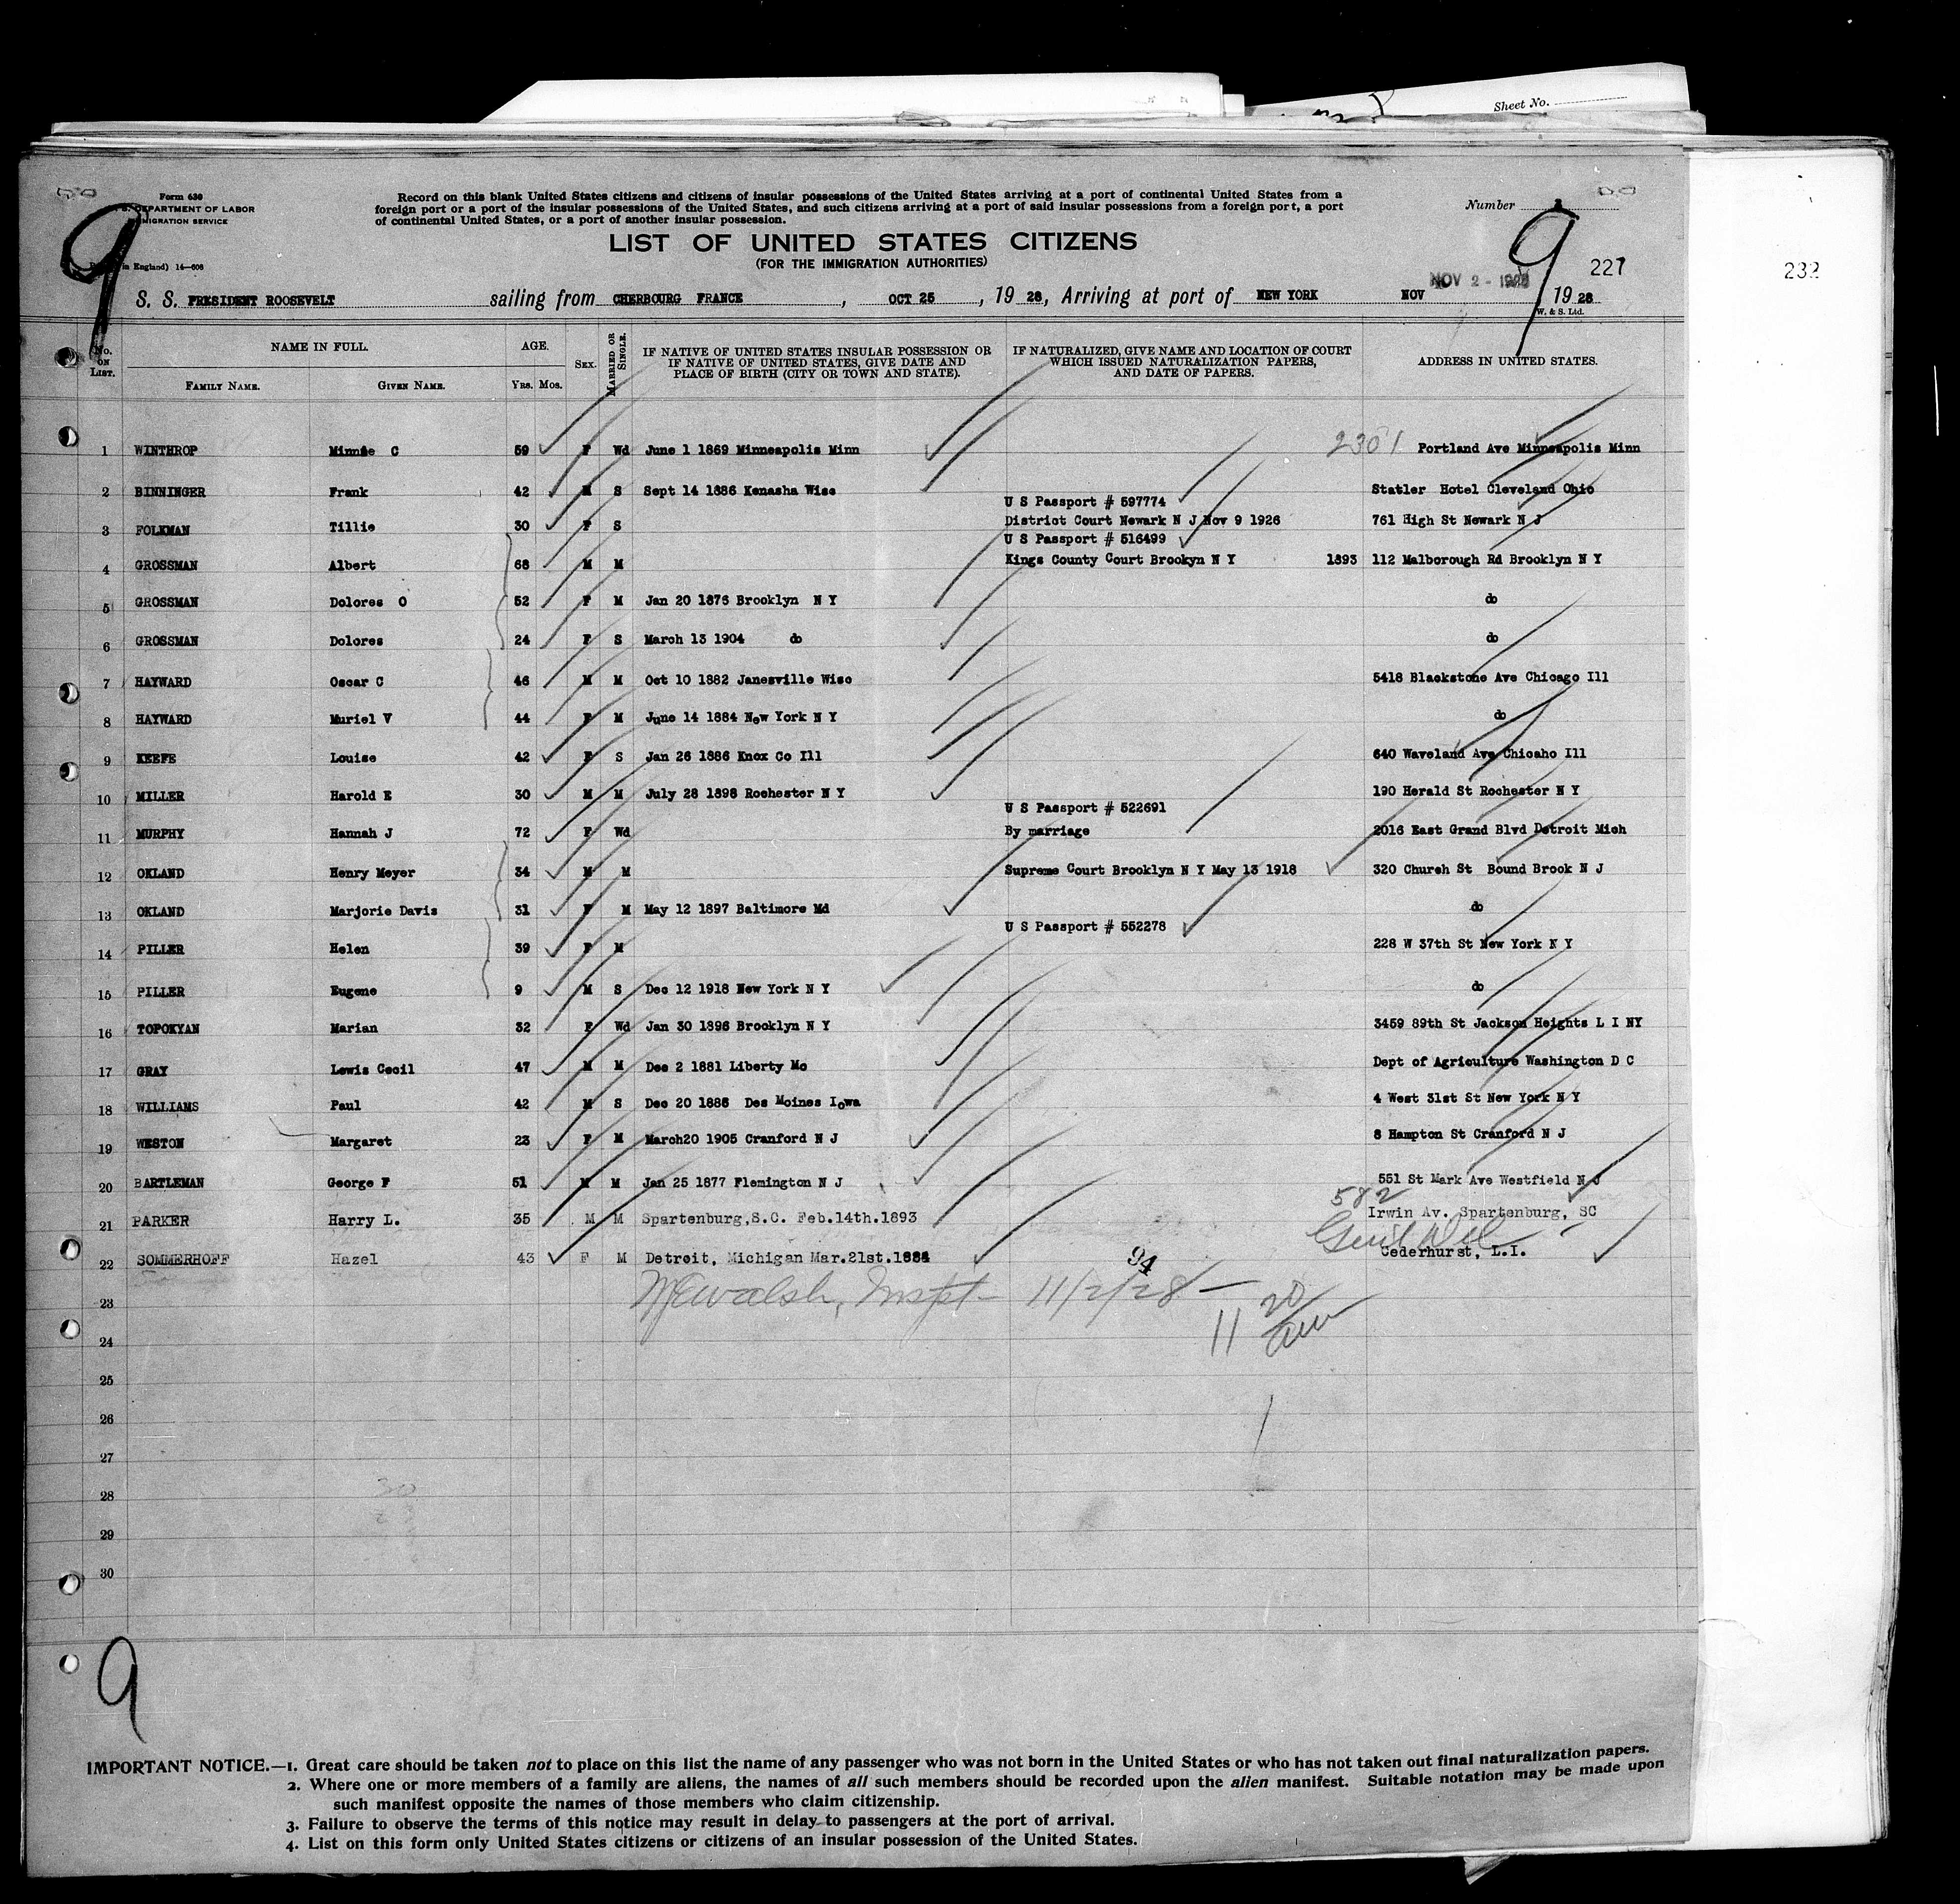 Sheet No.
Form 630
DEPARTMENT OF LABOR
IMMIGRATION SERVICE
in England) 14—606
Record on this blank United States citizens and citizens of insular possessions of the United States arriving at a port of continental United States from a
foreign port or a port of the insular possessions of the United States, and such citizens arriving at a port of said insular possessions from a foreign port, a port
of continental United States, or a port of another insular possession.
Number
9
9
227
232
LIST OF UNITED STATES CITIZENS
(FOR THE IMMIGRATION AUTHORITIES)
NOV 2 - 1928
S. S. PRESIDENT ROOSEVELT sailing from CHERBOURG FRANCE, OCT 25, 19 28, Arriving at port of NEW YORK NOV 19 28
W. & S. Ltd.
No. ON LIST. NAME IN FULL. FAMILY NAME. GIVEN NAME. AGE. YRS. MOS. SEX. MARRIED OR SINGLE. IF NATIVE OF UNITED STATES INSULAR POSSESSION OR IF NATIVE OF UNITED STATES, GIVE DATE AND PLACE OF BIRTH (CITY OR TOWN AND STATE). IF NATURALIZED, GIVE NAME AND LOCATION OF COURT WHICH ISSUED NATURALIZATION PAPERS, AND DATE OF PAPERS. ADDRESS IN UNITED STATES.
1 WINTHROP Minnie C 59 F Wd June 1 1869 Minneapolis Minn 2301 Portland Ave Minneapolis Minn
2 BINNINGER Frank 42 M S Sept 14 1886 Kenasha Wisc Statler Hotel Cleveland Ohio
U S Passport # 597774
3 FOLKMAN Tillie 30 F S District Court Newark N J Nov 9 1926 761 High St Newark N J
U S Passport # 516499
4 GROSSMAN Albert 68 M M Kings County Court Brookyn N Y 1893 112 Malborough Rd Brooklyn N Y
5 GROSSMAN Dolores O 52 F M Jan 20 1876 Brooklyn N Y do
6 GROSSMAN Dolores 24 F S March 13 1904 do do
7 HAYWARD Oscar C 46 M M Oct 10 1882 Janesville Wisc 5418 Blackstone Ave Chicago Ill
8 HAYWARD Muriel V 44 F M June 14 1884 New York N Y do
9 KEEFE Louise 42 F S Jan 26 1886 Knox Co Ill 640 Waveland Ave Chicaho Ill
10 MILLER Harold E 30 M M July 28 1898 Rochester N Y 190 Herald St Rochester N Y
U S Passport # 522691
11 MURPHY Hannah J 72 F Wd By marriage 2016 East Grand Blvd Detroit Mich
12 OKLAND Henry Meyer 34 M M Supreme Court Brooklyn N Y May 13 1918 320 Church St Bound Brook N J
13 OKLAND Marjorie Davis 31 F M May 12 1897 Baltimore Md do
U S Passport # 552278
14 PILLER Helen 39 F M 228 W 37th St New York N Y
15 PILLER Eugene 9 M S Dec 12 1918 New York N Y do
16 TOPOKYAN Marian 32 F Wd Jan 30 1896 Brooklyn N Y 3459 89th St Jackson Heights L I NY
17 GRAY Lewis Cecil 47 M M Dec 2 1881 Liberty Mo Dept of Agriculture Washington D C
18 WILLIAMS Paul 42 M S Dec 20 1886 Des Moines Iowa 4 West 31st St New York N Y
19 WESTON Margaret 23 F M March20 1905 Cranford N J 8 Hampton St Cranford N J
20 BARTLEMAN George F 51 M M Jan 25 1877 Flemington N J 551 St Mark Ave Westfield N J
582
21 PARKER Harry L. 35 M M Spartenburg,S.C. Feb.14th.1893 Irwin Av. Spartenburg, SC
22 SOMMERHOFF Hazel 43 F M Detroit, Michigan Mar.21st.1884 Cederhurst, L.I.
94
23 Walsh, Inspt- 11/2/28 -
11 20/am
24
25
26
27
28
29
30
9
IMPORTANT NOTICE.—1. Great care should be taken not to place on this list the name of any passenger who was not born in the United States or who has not taken out final naturalization papers.
2. Where one or more members of a family are aliens, the names of all such members should be recorded upon the alien manifest. Suitable notation may be made upon
such manifest opposite the names of those members who claim citizenship.
3. Failure to observe the terms of this notice may result in delay to passengers at the port of arrival.
4. List on this form only United States citizens or citizens of an insular possession of the United States.